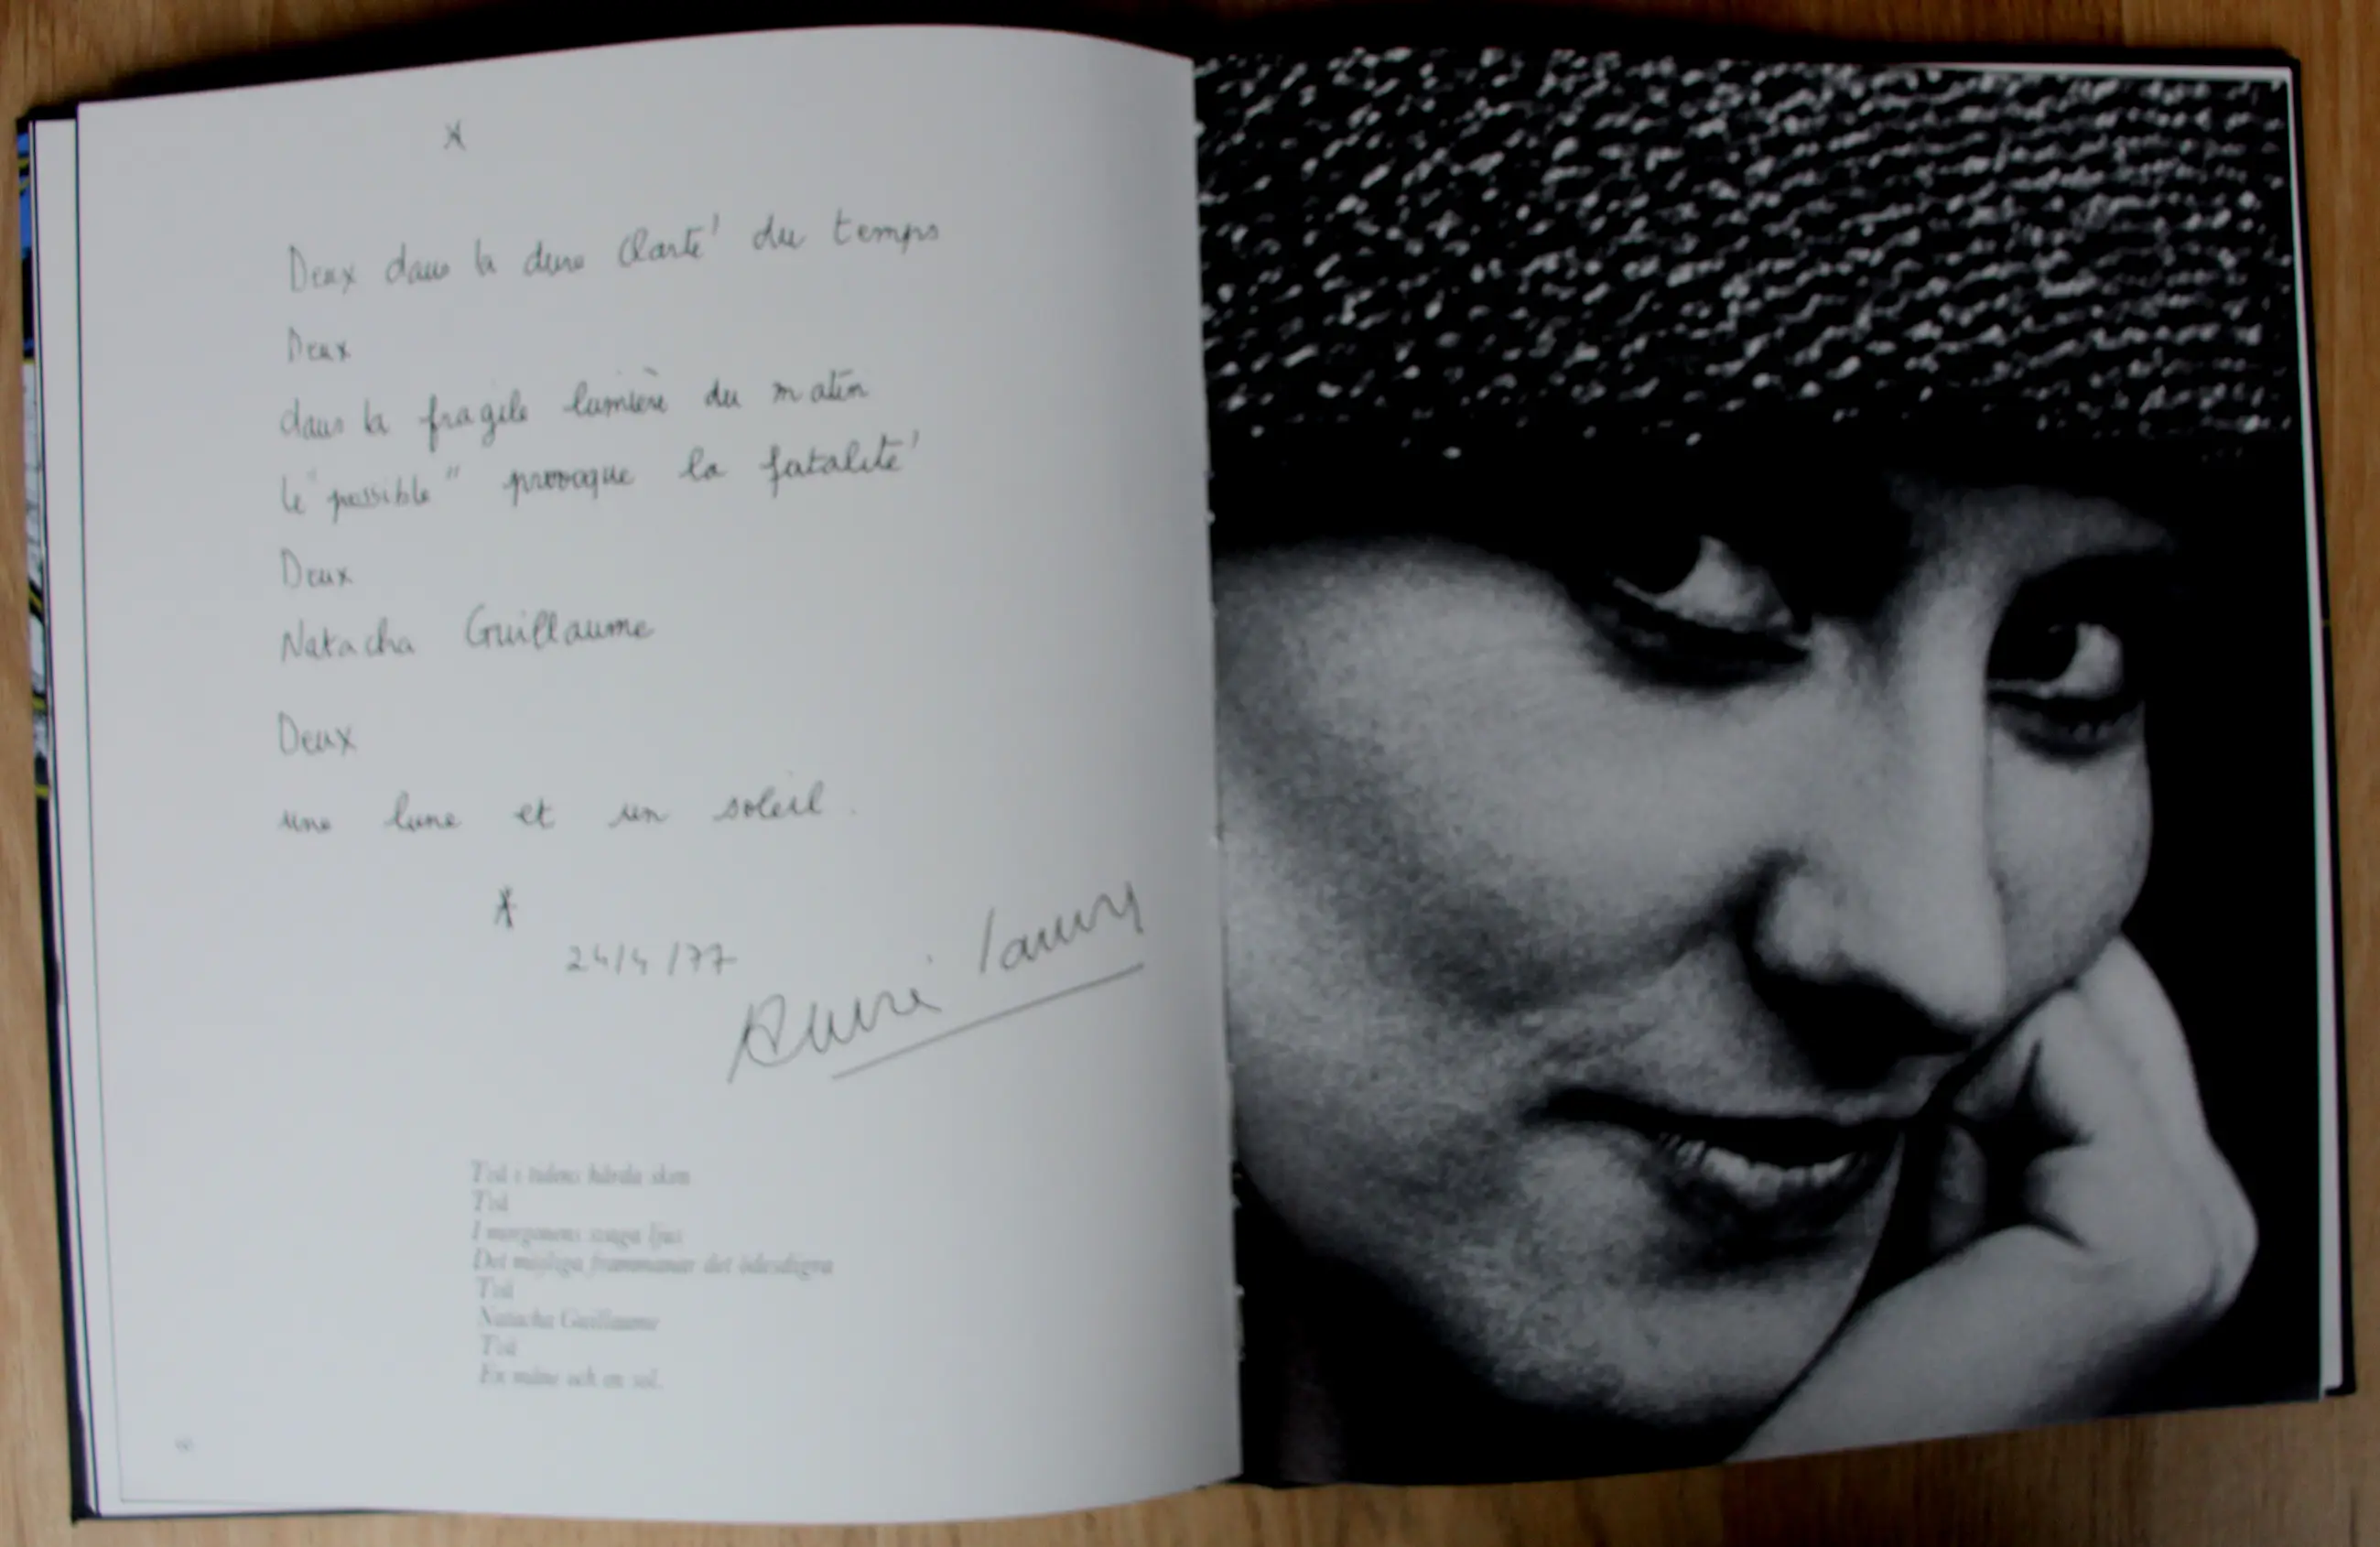 Deux dans la dure clarté du temps
Deux
dans la fragile lumière du matin
le "possible" provoque la fatalité
Deux
Natacha Guillaume
Deux
une lune et un soleil.
24/4/77
Två i tidens hårda sken
Två
I morgonens svaga ljus
Det möjliga frammanar det ödesdigra
Två
Natacha Guillaume
Två
En måne och en sol.